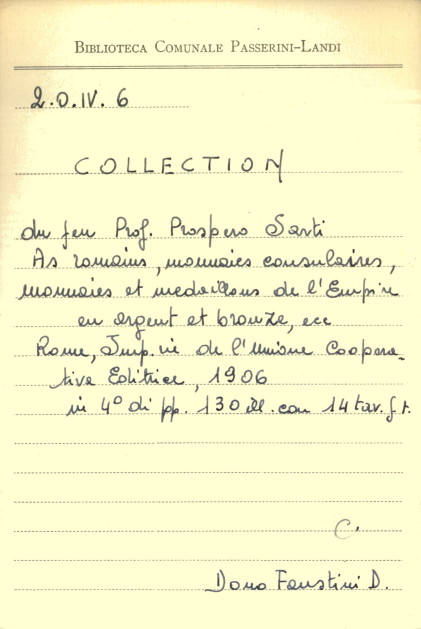 BIBLIOTECA COMUNALE PASSERINI-LANDI
2.O.IV.6
COLLECTION
du feu Prof. Prospero Sarti
As romains, monnaies consulaires,
monnaies et medaillons de l'Empire
en argent et bronze, ecc
Rome, Imp.rie de l'Unione Coopera-
tiva Editrice, 1906
in 4° di pp. 130 ill. con 14 tav. f.t.
C.
Dono Faustini D.